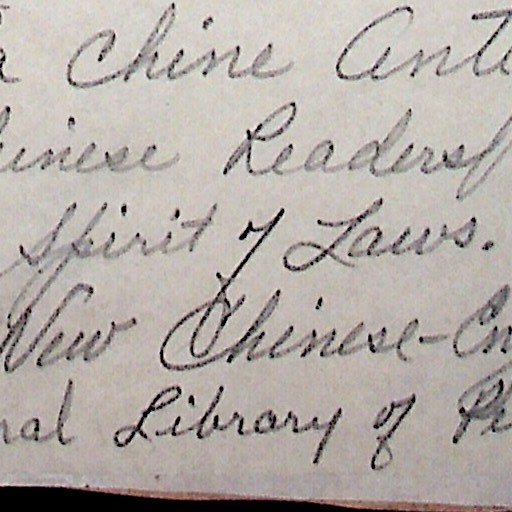 a Chine Ant
inese Readers
Spirit of Laws.
New Chinese-En
ral Library of P